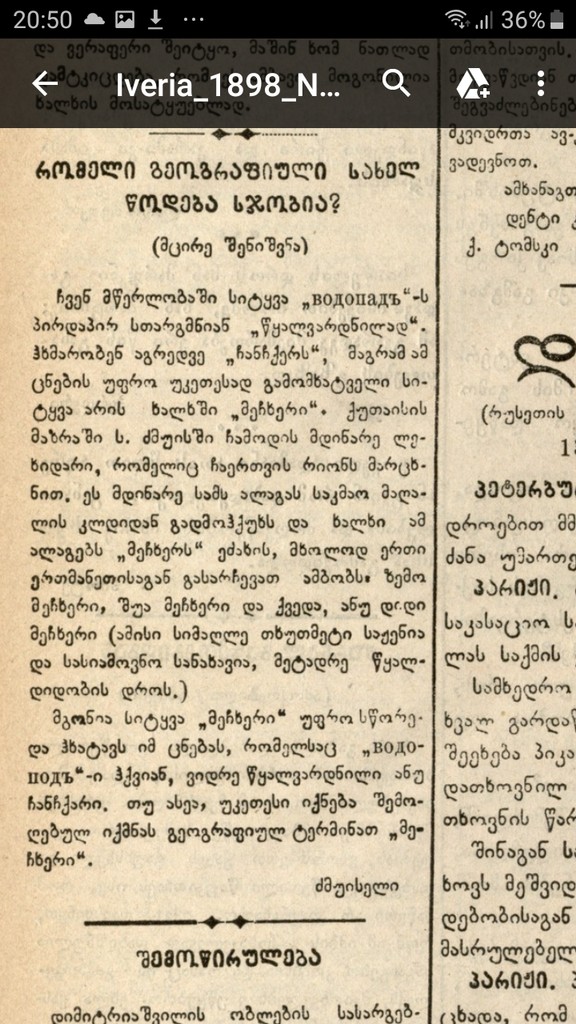 20:50
36%
Iveria_1898_N...
და ვერაფერი შეიტყო, მაშინ ხომ ნათლად
ხალხის მოსატყუებლად.
რომელი გეოგრაფიული სახელ
წოდება სჯობია?
(მცირე შენიშვნა)
ჩვენ მწერლობაში სიტყვა „водопадъ“-ს
პირდაპირ სთარგმნიან „წყალვარდნილად“.
ჰხმარობენ აგრედვე „ჩანჩქერს“, მაგრამ ამ
ცნების უფრო უკეთესად გამომხატველი სი-
ტყვა არის ხალხში „მეჩხერი“. ქუთაისის
მაზრაში ს. ძმუისში ჩამოდის მდინარე ლე-
ხიდარი, რომელიც ჩაერთვის რიონს მარცხ-
ნით. ეს მდინარე სამს ალაგას საკმაო მაღა-
ლის კლდიდან გადმოჰქუხს და ხალხი ამ
ალაგებს „მეჩხერს“ ეძახის, მხოლოდ ერთი
ერთმანეთისაგან გასარჩევათ ამბობს: ზემო
მეჩხერი, შუა მეჩხერი და ქვედა, ანუ დიდი
მეჩხერი (ამისი სიმაღლე თხუთმეტი საჟენია
და სასიამოვნო სანახავია, მეტადრე წყალ-
დიდობის დროს.)
მგონია სიტყვა „მეჩხერი“ უფრო სწორე-
და ჰხატავს იმ ცნებას, რომელსაც „водо-
подъ“-ი ჰქვიან, ვიდრე წყალვარდნილი ანუ
ჩანჩქარი. თუ ასეა, უკეთესი იქნება შემო-
ღებულ იქმნას გეოგრაფიულ ტერმინათ „მე-
ჩხერი“.
ძმუისელი
შემოწირულება
დიმიტრიაშვილის ობლების სასარგებ-
თმობისათვის.
მკვიდრთა ავ-
ვადევნოთ.
ამხანაგთ
დენტი
ქ. ტომსკი
(რუსეთის
პეტერბუ
დროებით მმ
ძანა უმართე
პარიჟი.
საკასაციო ს
ლას საქმის
სამხედრო
ხვალ გარდა
შეეხება პიკა
დათხოვნილ
თხოვნის წარ
შინაგან ს
ხოვს მეშვიდ
დებობისაგან
მასრულებელ
პარიჟი.
ცხადა, რომ